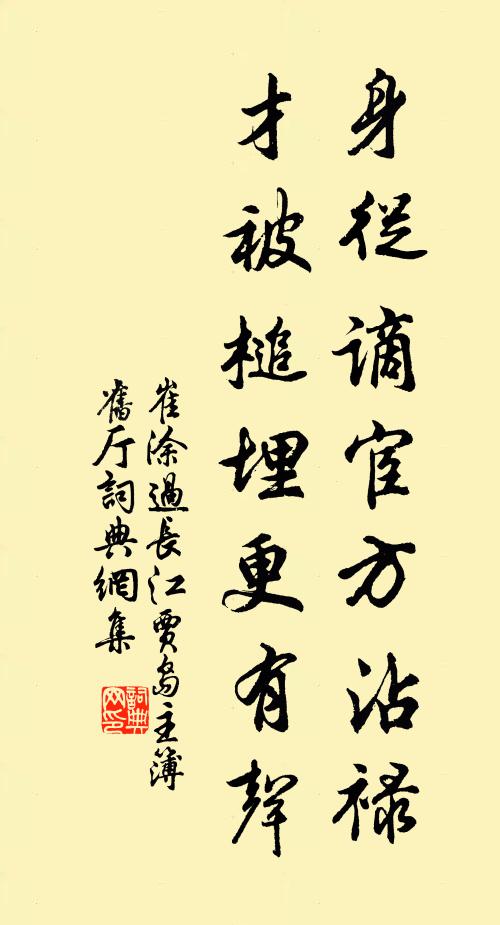 身從謫宦方沾祿
才被槌埋更有聲
崔涂過長江賈島主簿
舊厅詞典網集
詞典网印